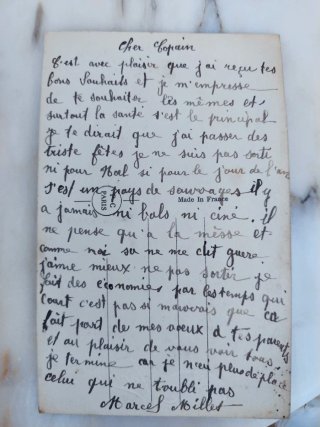 Cher Copain
C'est avec plaisir que j'ai reçu tes
bons Souhaits et je m'empresse
de te souhaiter les mêmes et
surtout la santé s'est le principal
je te dirait que j'ai passer des
triste fêtes je ne suis pas sorti
ni pour Noal si pour le jour de l'an
s'est un pays de sauvages il y
PARIS
Made in France
a jamais ni bals ni ciné. il
ne pense qu'a la mèsse et
comme moi sa ne me dit guere
j'aime mieux ne pas sortir je
fait des économies par les temps qui
court c'est pas si mauvais que ca
fait part de mes voeux a tes parents
et au plaisir de vous voir tous
je termine car je n'ai plus de place
celui qui ne t'oubli pas
Marcel Millet